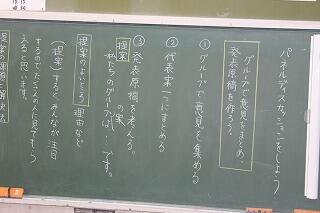 パネルディスカッションをしよう
グループで意見をまとめ、
発表原稿を作ろう。
①グループで意見を集める
②代表案一つにまとめる
③発表原稿を考える。
提案 の案
「私たちのグループは、…です。
提案のよいところ 理由など
(提案)するとみんなが注目
するのでたくさんの人に見てもら
えると思います。
提案の課題と解決法